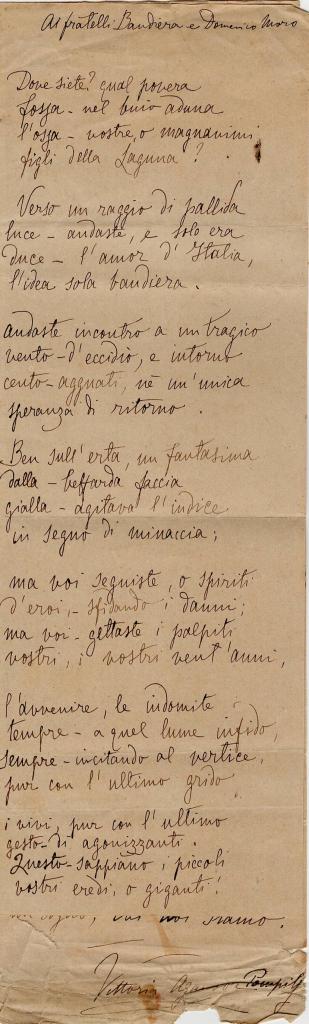 Ai fratelli Bandiera e Domenico Moro
Dove siete? qual povera
fossa - nel buio aduna
l'ossa - vostre, o magnanimi
figli della Laguna?
Verso un raggio di pallida
luce - andaste, e solo era
duce - l'amor d'Italia,
l'idea sola bandiera.
andaste incontro a un tragico
vento - d'eccidio, e intorno
cento - agguati, nè un'unica
speranza di ritorno.
Ben sull'erta, un fantasima
dalla - beffarda faccia
gialla - agitava l'indice
in segno di minaccia;
ma voi seguiste, o spiriti
d'eroi, - sfidando i danni;
ma voi - gettaste i palpiti
vostri, i vostri vent'anni,
l'avvenire, le indomite
tempre - a quel lume infido,
sempre - incitando al vertice,
pur con l'ultimo grido
i vivi, pur con l'ultimo
gesto - di agonizzanti.
Questo - sappiano i piccoli
vostri eredi, o giganti!
siamo.
Vittoria Aganoor Pompilj